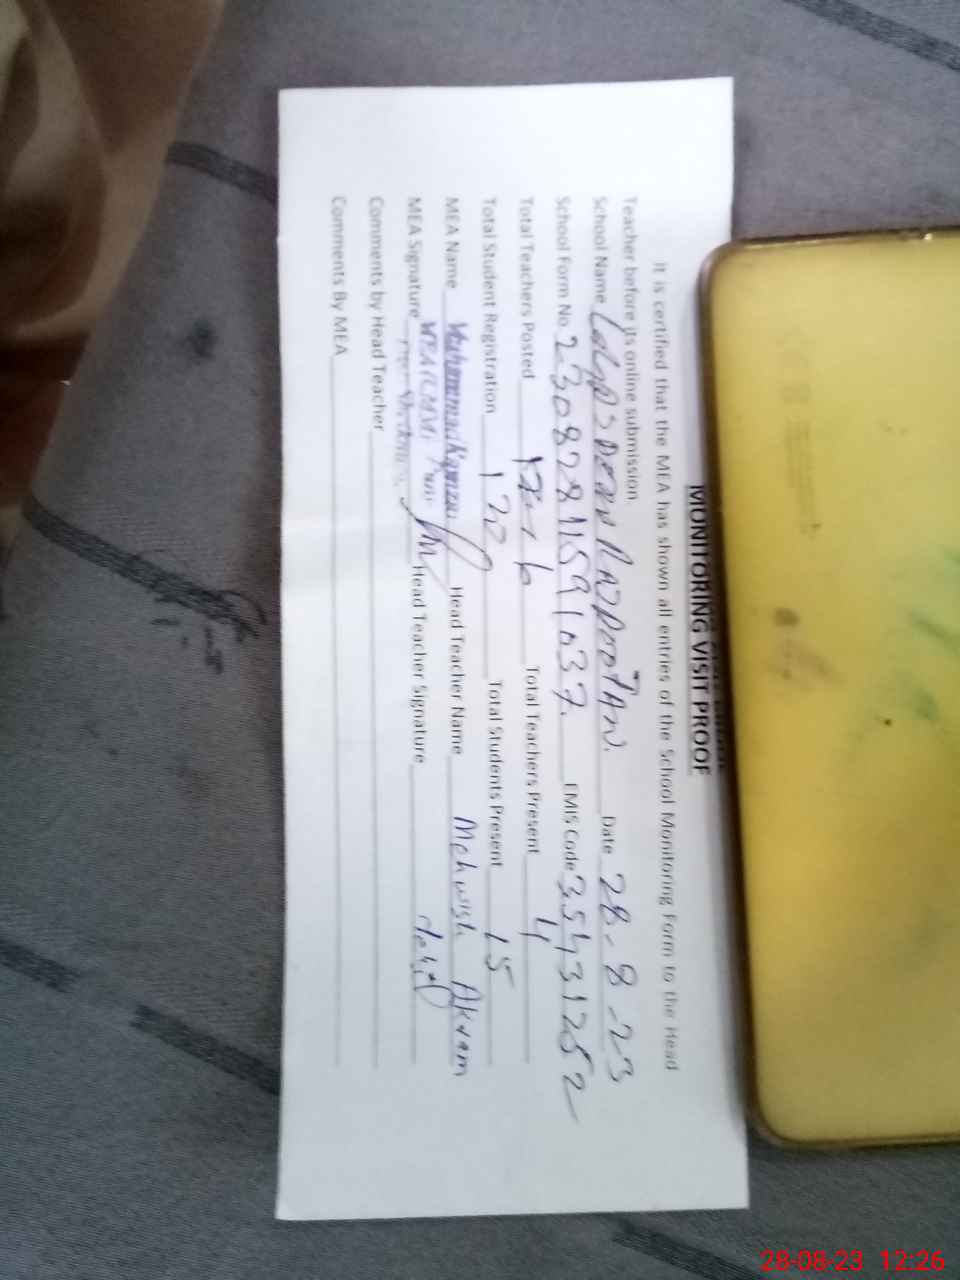 MONITORING VISIT PROOF
It is certified that the MEA has shown all entries of the School Monitoring Form to the Head
Teacher before its online submission.
School Name Date 28-8-23
School Form No 23082811591037. EMIS Code 35431252
Total Teachers Posted 6 Total Teachers Present 4
Total Student Registration 122 Total Students Present 15
MEA Name Muhammad Head Teacher Name Mehwish Akram
MEA Signature Head Teacher Signature
Comments by Head Teacher
Comments By MEA
28-08-23 12:26